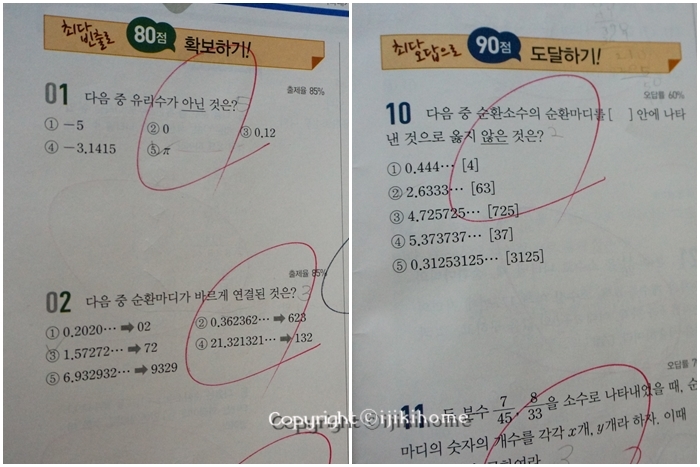 최다
빈출로 80점 확보하기!
출제율 85%
01 다음 중 유리수가 아닌 것은? 5
① -5 ② 0 ③ 0.12
④ -3.1415 ⑤ π
출제율 85%
02 다음 중 순환마디가 바르게 연결된 것은? 3
① 0.2020⋯ ➡ 02 ② 0.362362⋯ ➡ 623
③ 1.57272⋯ ➡ 72 ④ 21.321321⋯ ➡ 132
⑤ 6.932932⋯ ➡ 9329
최다
오답으로 90점 도달하기!
오답률 60%
10 다음 중 순환소수의 순환마디를 [ ] 안에 나타
낸 것으로 옳지 않은 것은? 2
① 0.444⋯ [4]
② 2.6333⋯ [63]
③ 4.725725⋯ [725]
④ 5.373737⋯ [37]
⑤ 0.31253125⋯ [3125]
오답률
11 두 분수 7/45, 8/33을 소수로 나타내었을 때, 순
마디의 숫자의 개수를 각각 x개, y개라 하자. 이때
Copyright ©ijikihome
Copyright ©ijikihome